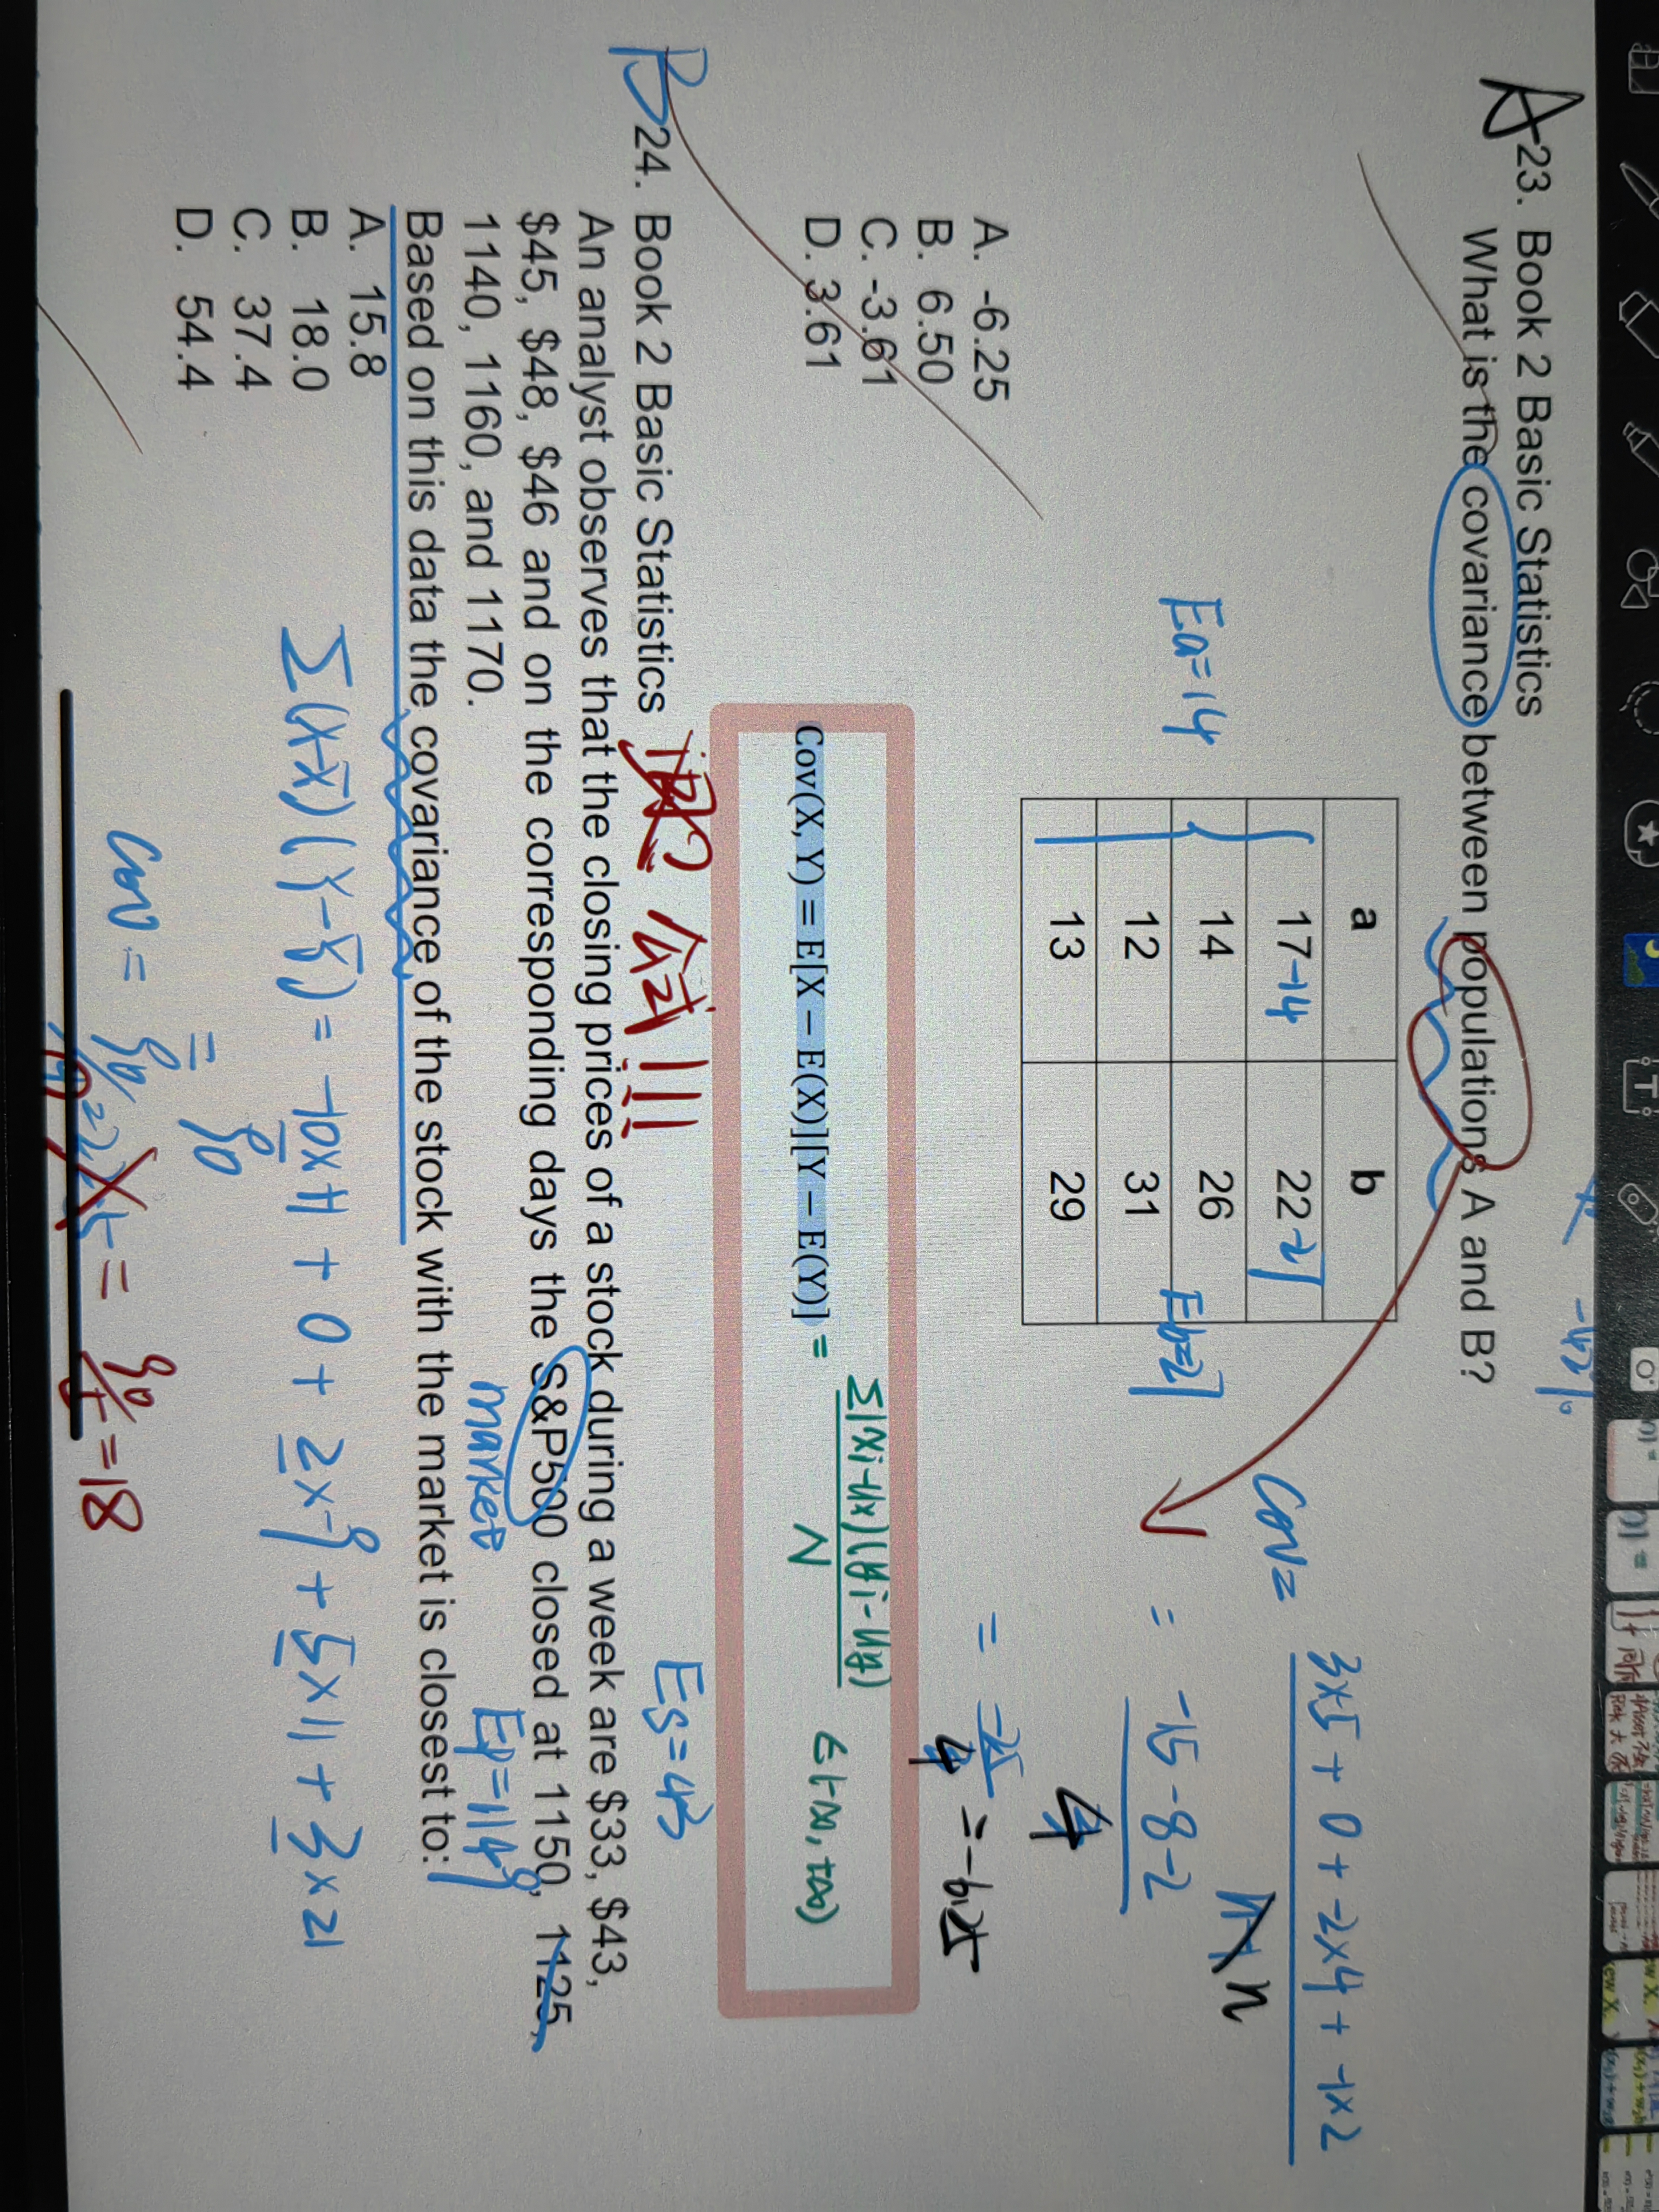 23. Book 2 Basic Statistics
What is the covariance between populations A and B?
a b
17-14 22-27
14 26
12 31
13 29
Ea=14
Eb=27
Cov=
3×5 + 0 + -2×4 + -1×2
n
= -15 -8 -2
4
= -25
4
= -6.25
A. -6.25
B. 6.50
C. -3.61
D. 3.61
Cov(X, Y) = E[X – E(X)][Y – E(Y)] = Σ(Xi-ux)(yi-uy)
N
(-∞, +∞)
B 24. Book 2 Basic Statistics
公式!!!
Es=43
An analyst observes that the closing prices of a stock during a week are $33, $43,
$45, $48, $46 and on the corresponding days the S&P500 closed at 1150, 1125,
1140, 1160, and 1170.
market
Ep=1149
Based on this data the covariance of the stock with the market is closest to:
A. 15.8
B. 18.0
C. 37.4
D. 54.4
Σ(x-x̄)(y-ȳ) = -10×1 + 0 + 2×-9 + 5×11 + 3×21
= 90
Cov =
= 90
5
=18